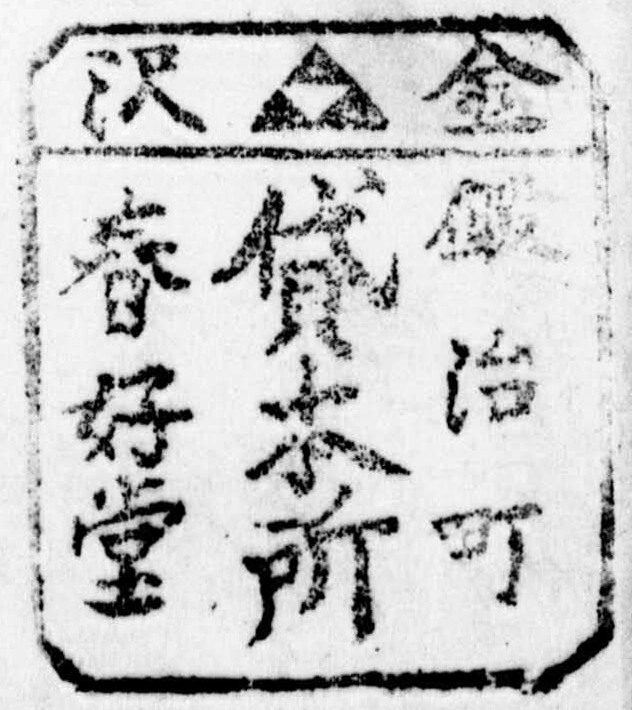 金沢
鍛治町
貸本所
春好堂